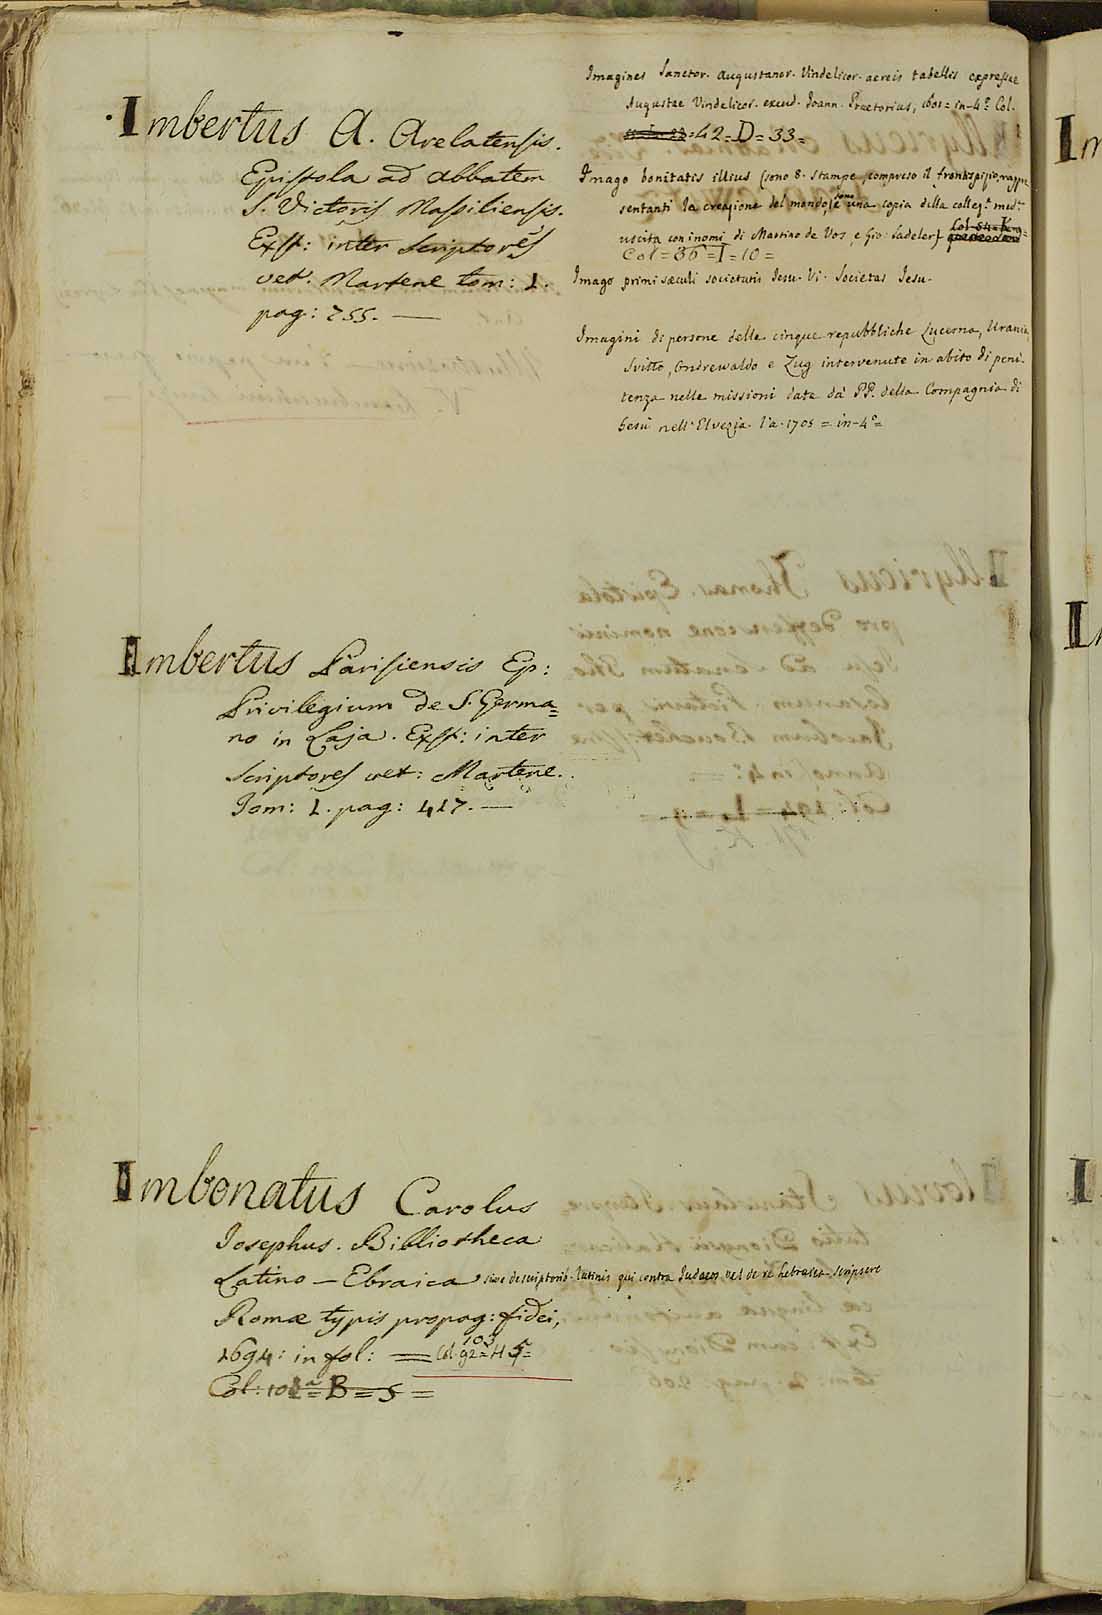 Imbertus A. Arelatensis.
Epistola ad Abbatem
S. Victoris Massiliensis.
Exst: inter Scriptores
vet. Martene tom: 1.
pag: 255. —
Imbertus Parisiensis Ep:
Privilegium de S. Germa=
no in Laja. Exst: inter
Scriptores vet: Martene.
Tom: 1. pag: 417. —
Imbonatus Carolus
Josephus. Bibliotheca
Latino — Ebraica, sive de scriptorib. latinis qui contra Judaeos vel de re hebraica scripsere
Romæ typis propag: fidei,
1694: in fol: = Col. 92 = H 5 =
103
Col: 101ª = B = 5 =
Imagines Sanctor. Augustanor. Vindelicor. aereis tabellis expressae
Augustae Vindelicor. excud. Joann. Praetorius, 1601 = in-4.º Col.
= 42 = D = 33 =
Imago bonitatis illius (sono 8. stampe, compreso il frontispizio, rappre
sentanti la creazione del mondo, e sono una copia della collez.e med.ª
uscita con i nomi di Martino de Vos, e Gio. Sadeler)
Col = 36 = I = 10 =
Imago primi sæculi societatis Jesu. Vi. Societas Jesu.
Imagini di persone delle cinque repubbliche Lucerna, Urania,
Svitto, Ondrewaldo e Zug intervenute in abito di peni-
tenza nelle missioni date da' PP. della Compagnia di
Gesù nell'Elvezia l'a. 1705 = in-4º =